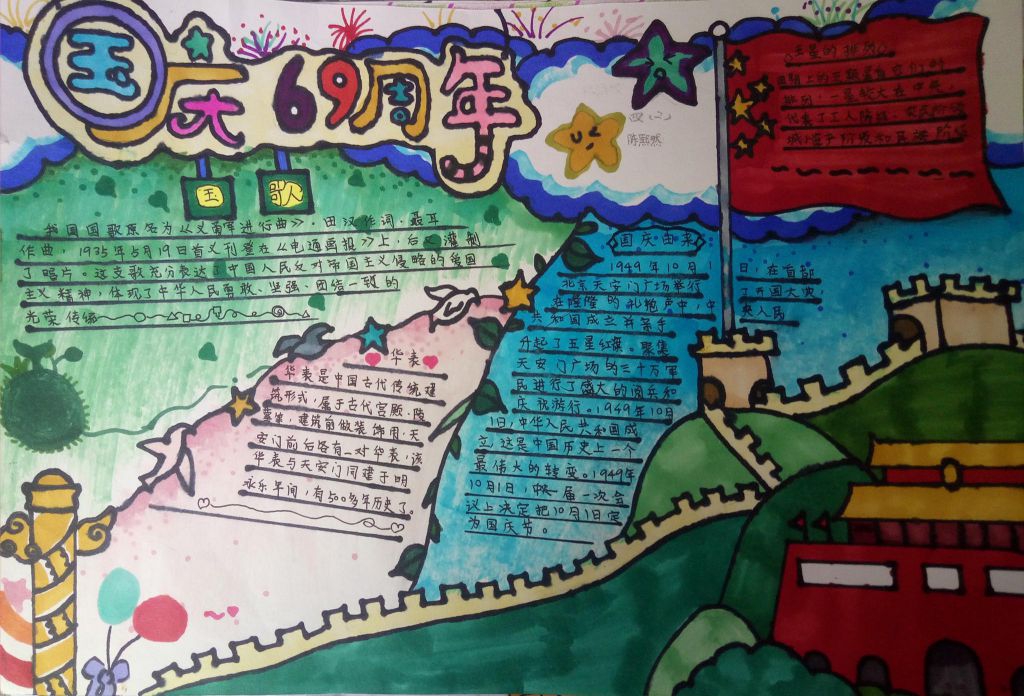 国庆69周年
四(二)
陈熙然
五星的排列。
代表了工人阶级、农民阶级
城小资产阶级和民族阶级
国歌
我国国歌原名为《义勇军进行曲》，田汉作词，聂耳
作曲，1935年5月19日首次刊登在《电通画报》上，后又灌制
了唱片。这支歌充分表达了中国人民反对帝国主义侵略的爱国
主义精神，体现了中华人民勇敢、坚强、团结一致的
光荣传统
华表
华表是中国古代传统建
筑形式，属于古代宫殿、陵
墓等，建筑前做装饰用，天
安门前后各有一对华表，该
华表与天安门同建于明
永乐年间，有500多年历史了。
国庆由来
1949年10月1日，在首都
北京天安门广场举行了开国大典
在隆隆的礼炮声中，中央人民
共和国成立并亲手
升起了五星红旗。聚集
天安门广场的三十万军
民进行了盛大的阅兵和
庆祝游行。1949年10月
1日，中华人民共和国成
立，这是中国历史上一个
最伟大的转变。1949年
10月1日，中央一届一次会
议上决定把10月1日定
为国庆节。